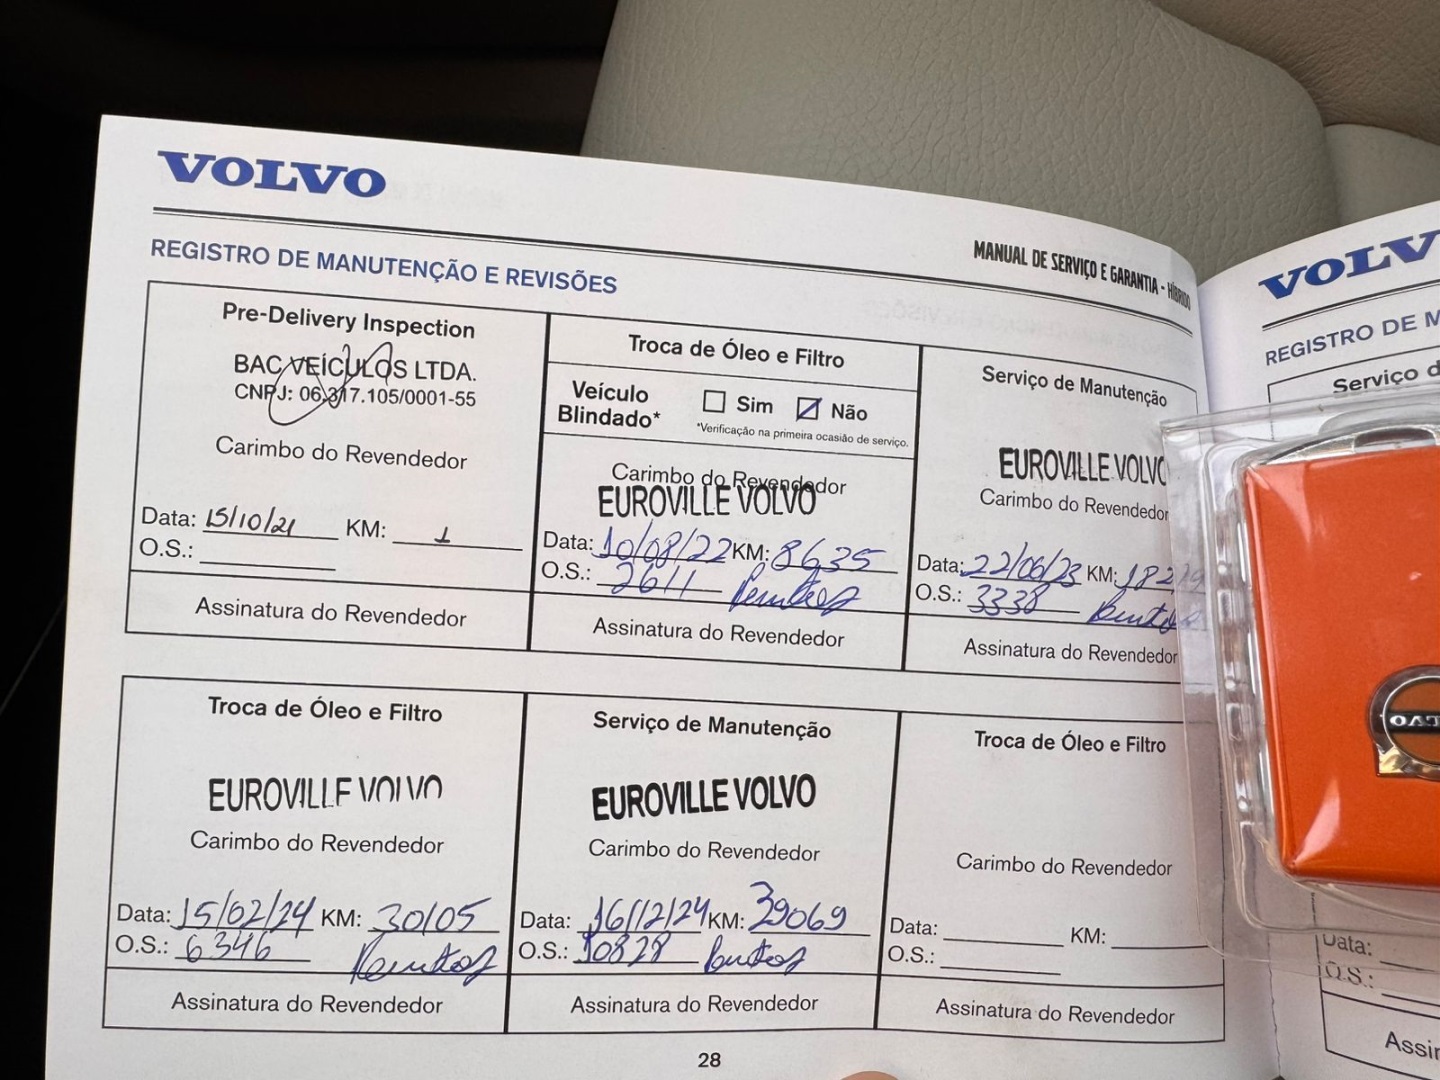 VOLVO
MANUAL DE SERVIÇO E GARANTIA - HÍBRIDO
REGISTRO DE MANUTENÇÃO E REVISÕES
Pre-Delivery Inspection
BAC VEÍCULOS LTDA.
CNPJ: 06.317.105/0001-55
Carimbo do Revendedor
Data: 15/10/21 KM: 1
O.S.:
Assinatura do Revendedor
Troca de Óleo e Filtro
Veículo Blindado* Sim Não
*Verificação na primeira ocasião de serviço.
Carimbo do Revendedor
EUROVILLE VOLVO
Data: 10/08/22 KM: 8635
O.S.: 2611
Assinatura do Revendedor
Serviço de Manutenção
EUROVILLE VOLVO
Carimbo do Revendedor
Data: 22/06/23 KM:
O.S.: 3338
Assinatura do Revendedor
Troca de Óleo e Filtro
EUROVILLE VOLVO
Carimbo do Revendedor
Data: 15/02/24 KM: 30105
O.S.: 6346
Assinatura do Revendedor
Serviço de Manutenção
EUROVILLE VOLVO
Carimbo do Revendedor
Data: 16/12/24 KM: 39069
O.S.: 10828
Assinatura do Revendedor
Troca de Óleo e Filtro
Carimbo do Revendedor
Data: KM:
O.S.:
Assinatura do Revendedor
28
VOLV
REGISTRO DE M
Serviço d
Data:
O.S.:
Assin